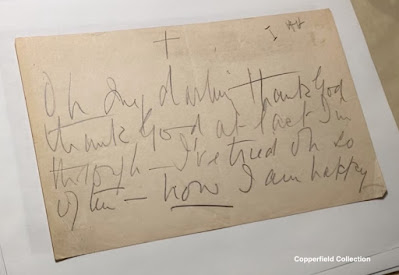 I
Oh my darling thank God
thank God at last I'm
through - I've tried oh so
often - now I am happy
Copperfield Collection